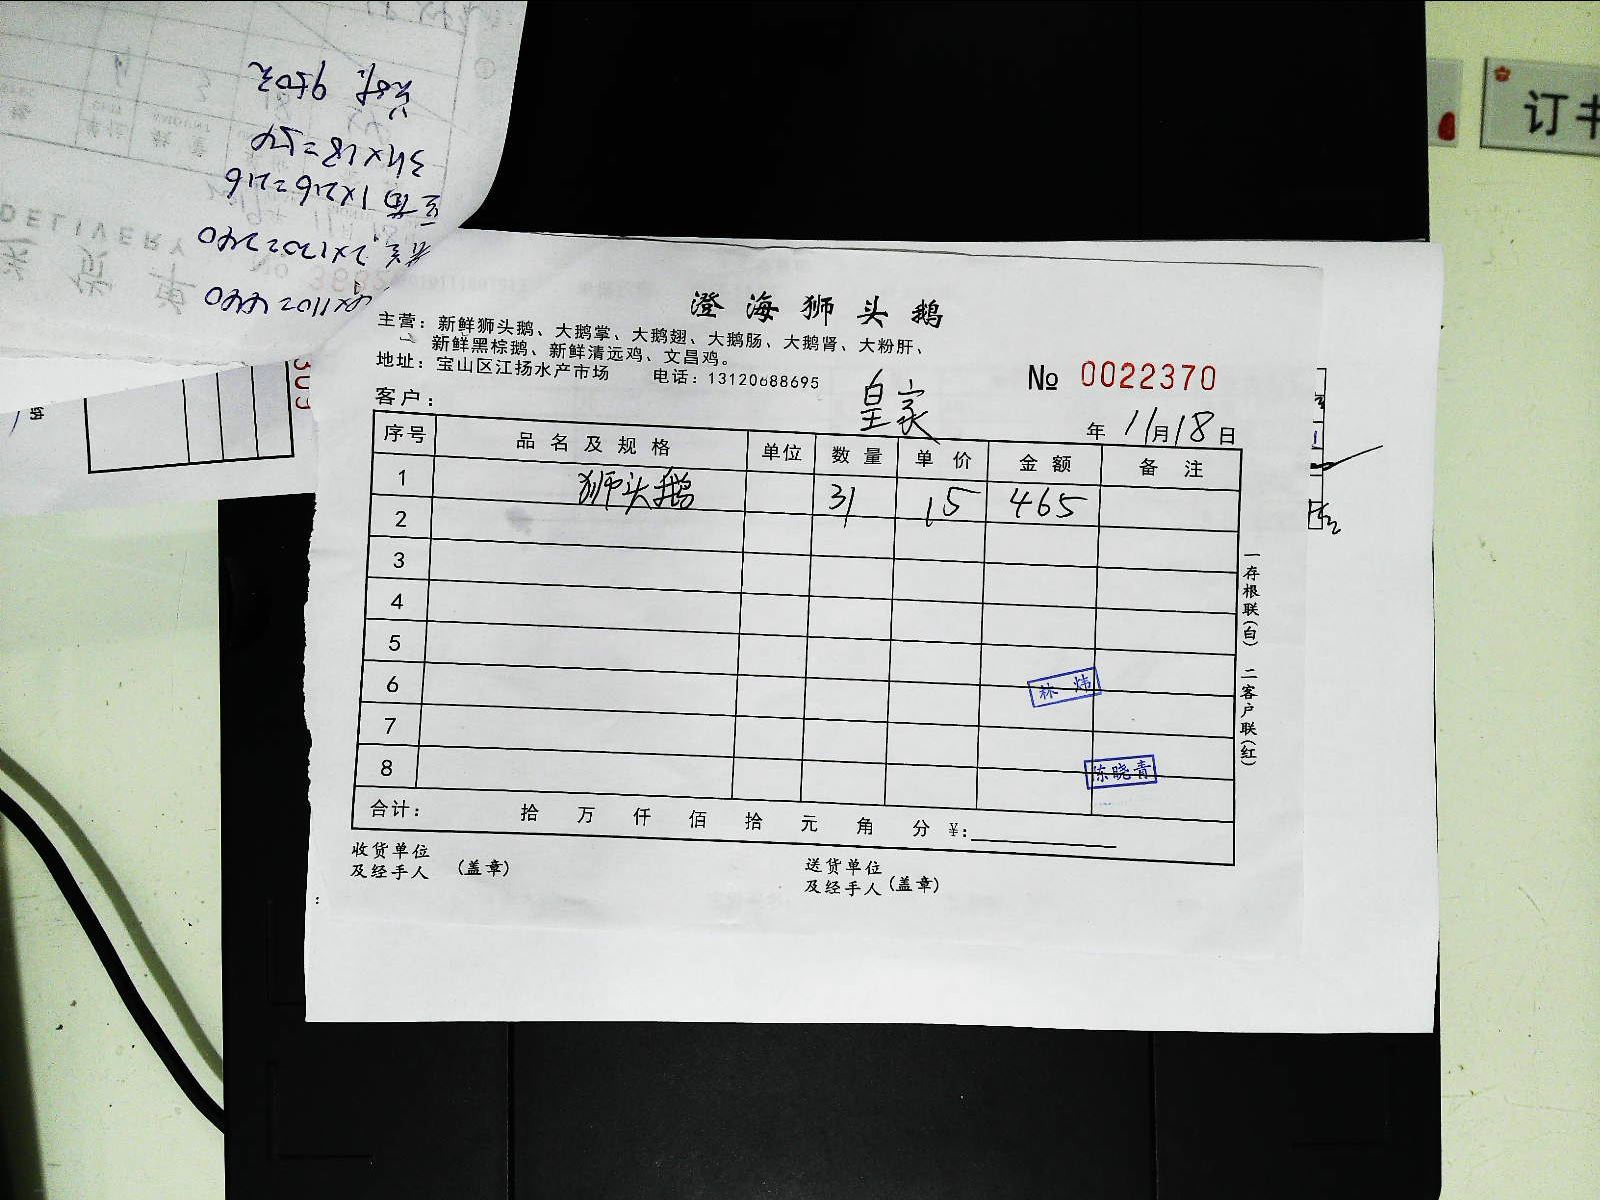 订书
34×18=
1×216=216
澄海狮头鹅
主营：新鲜狮头鹅、大鹅掌、大鹅翅、大鹅肠、大鹅肾、大粉肝、
新鲜黑棕鹅、新鲜清远鸡、文昌鸡。
地址：宝山区江扬水产市场 电话：13120688695
№ 0022370
客户： 皇家
年 11月18日
序号 品名及规格 单位 数量 单价 金额 备注
1 狮头鹅 31 15 465
2
3
4
5
6
林炜
7
8
陈晓青
合计： 拾 万 仟 佰 拾 元 角 分 ¥:
收货单位
及经手人 (盖章)
送货单位
及经手人 (盖章)
一存根联(白) 二客户联(红)
DELIVERY